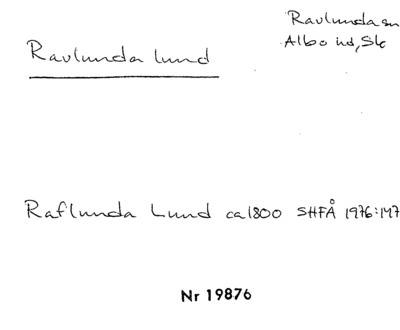 Ravlunda sn
Albo hd, Sk
Ravlunda lund
Raflunda Lund ca 1800 SHFÅ 1976:147
Nr 19876